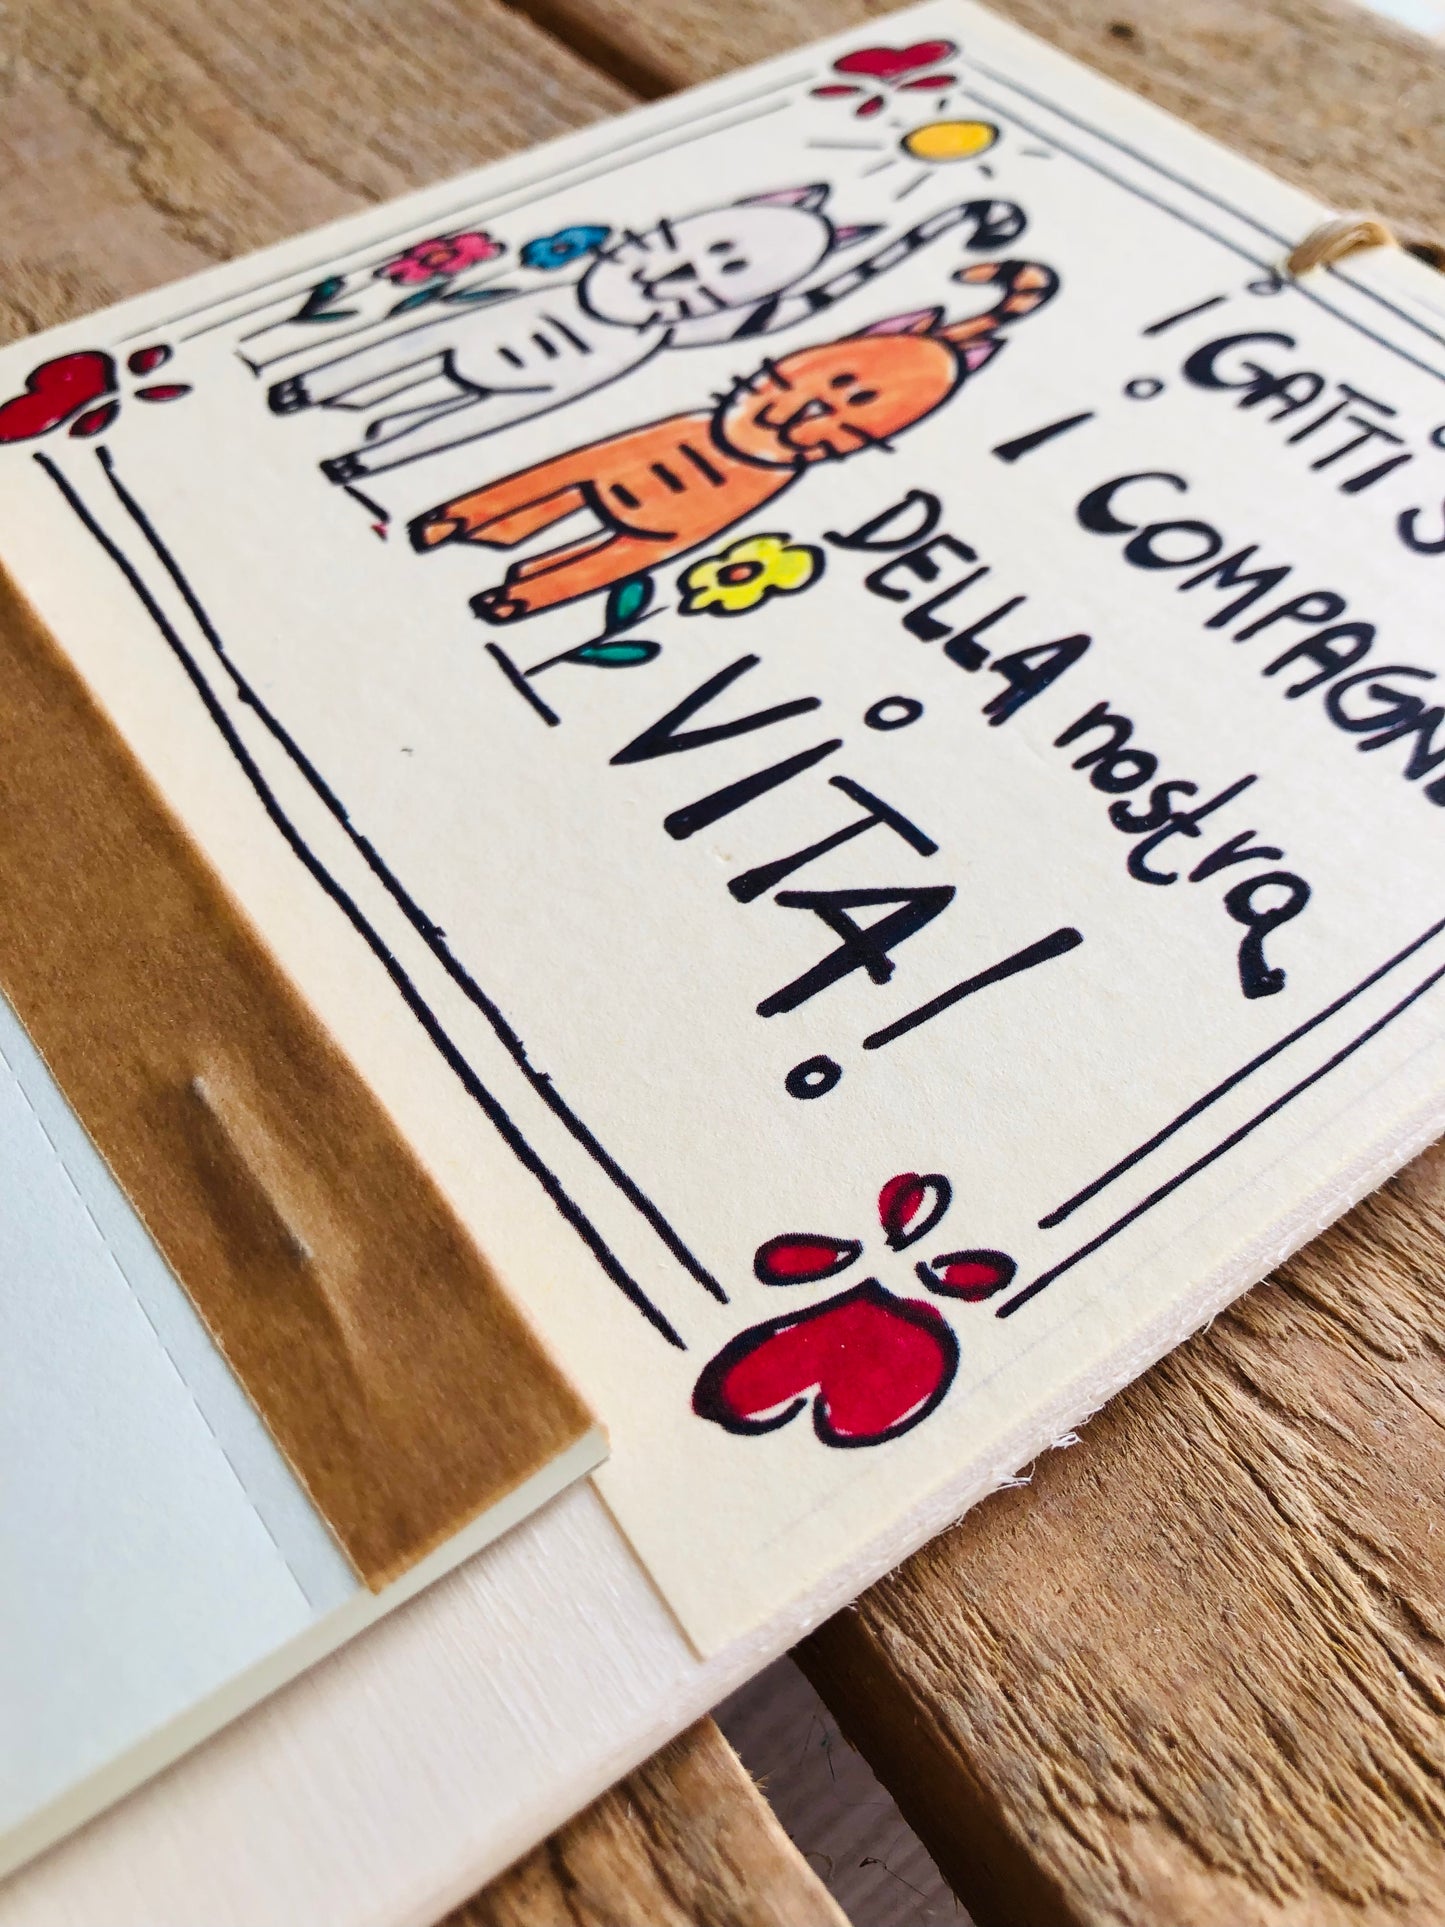 I GATTI
I COMPAGNI
DELLA nostra
VITA!